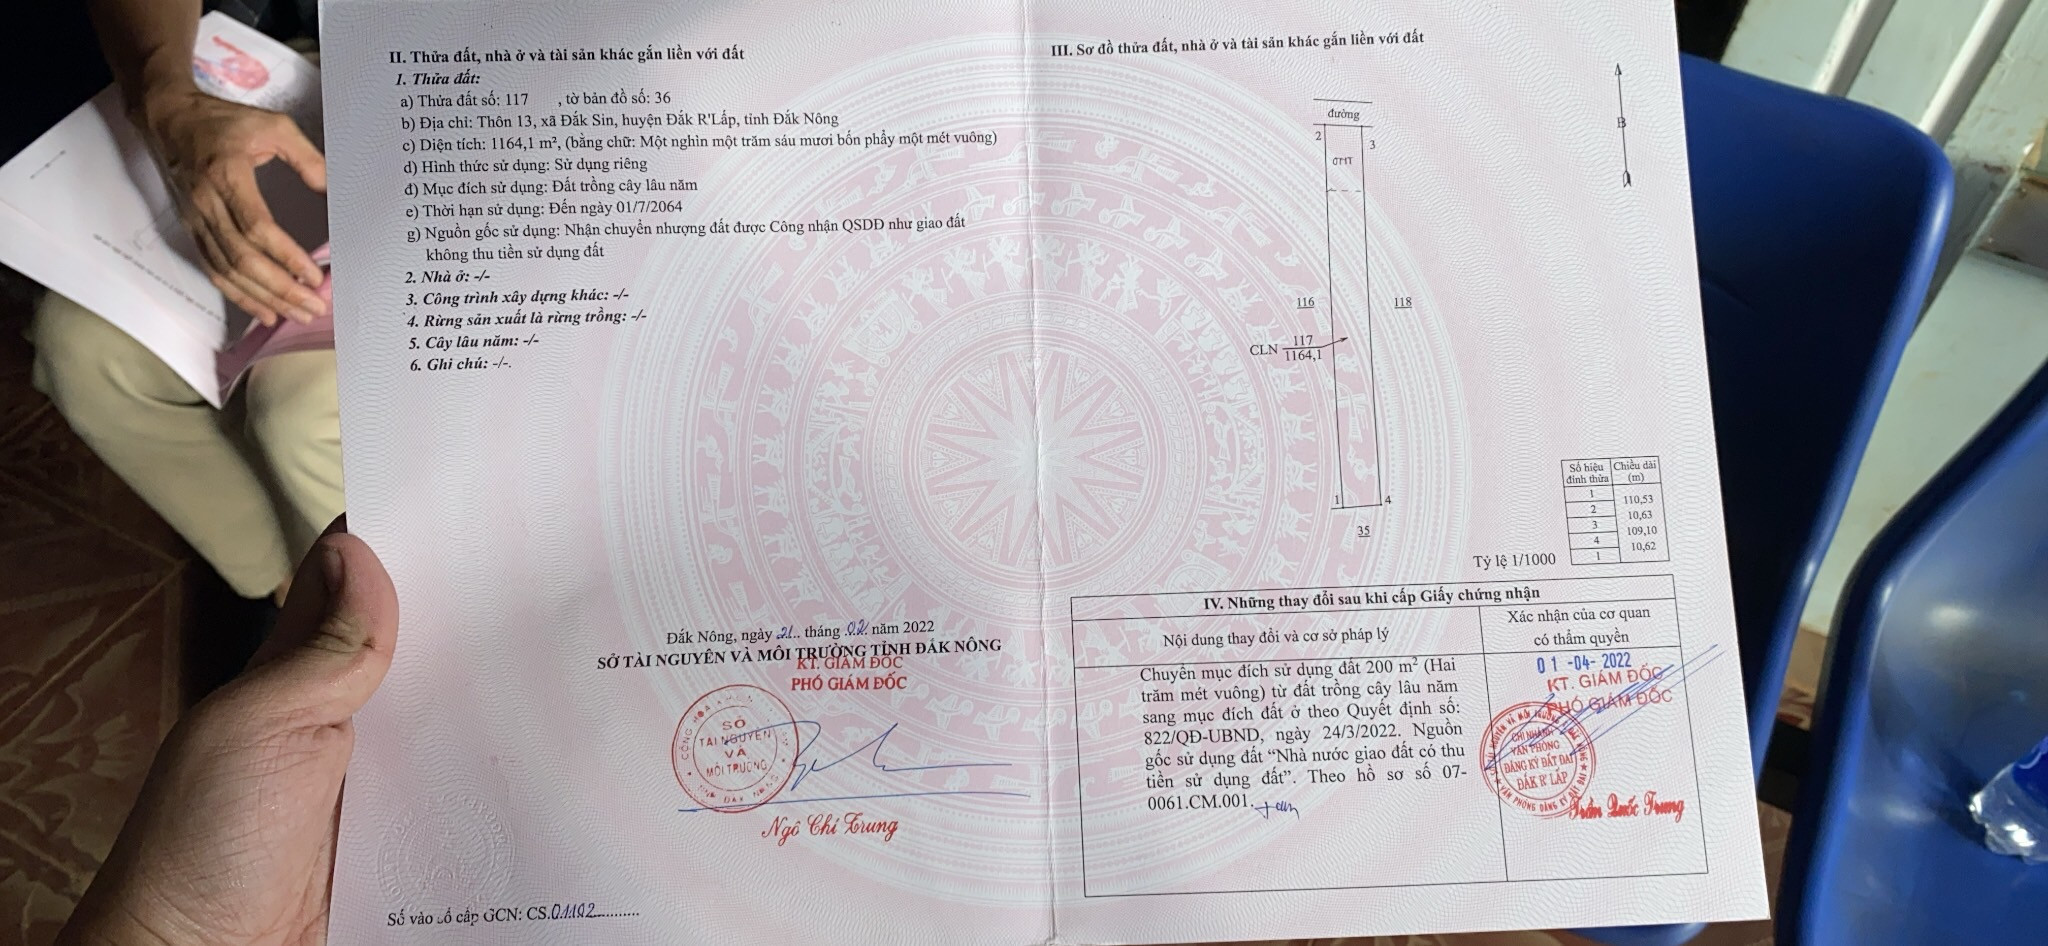 II. Thửa đất, nhà ở và tài sản khác gắn liền với đất
1. Thửa đất:
a) Thửa đất số: 117 , tờ bản đồ số: 36
b) Địa chỉ: Thôn 13, xã Đắk Sin, huyện Đắk R'Lấp, tỉnh Đắk Nông
c) Diện tích: 1164,1 m², (bằng chữ: Một nghìn một trăm sáu mươi bốn phẩy một mét vuông)
d) Hình thức sử dụng: Sử dụng riêng
đ) Mục đích sử dụng: Đất trồng cây lâu năm
e) Thời hạn sử dụng: Đến ngày 01/7/2064
g) Nguồn gốc sử dụng: Nhận chuyển nhượng đất được Công nhận QSDĐ như giao đất
không thu tiền sử dụng đất
2. Nhà ở: -/-
3. Công trình xây dựng khác: -/-
4. Rừng sản xuất là rừng trồng: -/-
5. Cây lâu năm: -/-
6. Ghi chú: -/-.
Đắk Nông, ngày 21.. tháng .02. năm 2022
SỞ TÀI NGUYÊN VÀ MÔI TRƯỜNG TỈNH ĐẮK NÔNG
KT. GIÁM ĐỐC
PHÓ GIÁM ĐỐC
SỞ
TÀI NGUYÊN
VÀ
MÔI TRƯỜNG
Ngô Chí Trung
Số vào sổ cấp GCN: CS.01102...........
III. Sơ đồ thửa đất, nhà ở và tài sản khác gắn liền với đất
đường
B
2
3
116
118
CLN 117
1164,1
1
4
35
Số hiệu đỉnh thửa Chiều dài (m)
1
110,53
2
10,63
3
109,10
4
10,62
1
Tỷ lệ 1/1000
IV. Những thay đổi sau khi cấp Giấy chứng nhận
Nội dung thay đổi và cơ sở pháp lý
Xác nhận của cơ quan
có thẩm quyền
Chuyển mục đích sử dụng đất 200 m² (Hai
trăm mét vuông) từ đất trồng cây lâu năm
sang mục đích đất ở theo Quyết định số:
822/QĐ-UBND, ngày 24/3/2022. Nguồn
gốc sử dụng đất “Nhà nước giao đất có thu
tiền sử dụng đất”. Theo hồ sơ số 07-
0061.CM.001.
01 -04- 2022
KT. GIÁM ĐỐC
PHÓ GIÁM ĐỐC
CHI NHÁNH
VĂN PHÒNG
ĐĂNG KÝ ĐẤT ĐAI
ĐẮK R'LẤP
Trần Quốc Trung